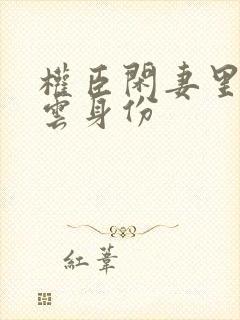 權臣閑妻里
雲身份
紅葦